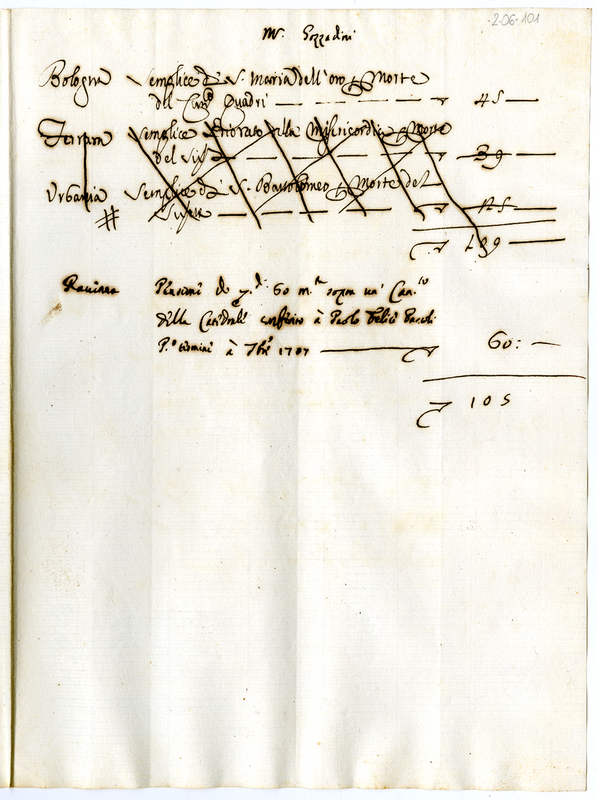 2-06-101
Mr. Gozzadini
Bologna Semplice di S. Maria dell'oro p Morte
del Quadri — 45 —
Ferrara Semplice Priorato della Misericordia p Morte
del — 39 —
Urbania Semplice di S. Bartolomeo p Morte del
— 125 —
— 189 —
Ravenna Pensione de 60 sopra un' Can.to
della Catedrale à Paolo Felice
P.o à 7bre 1707 — 60: —
105